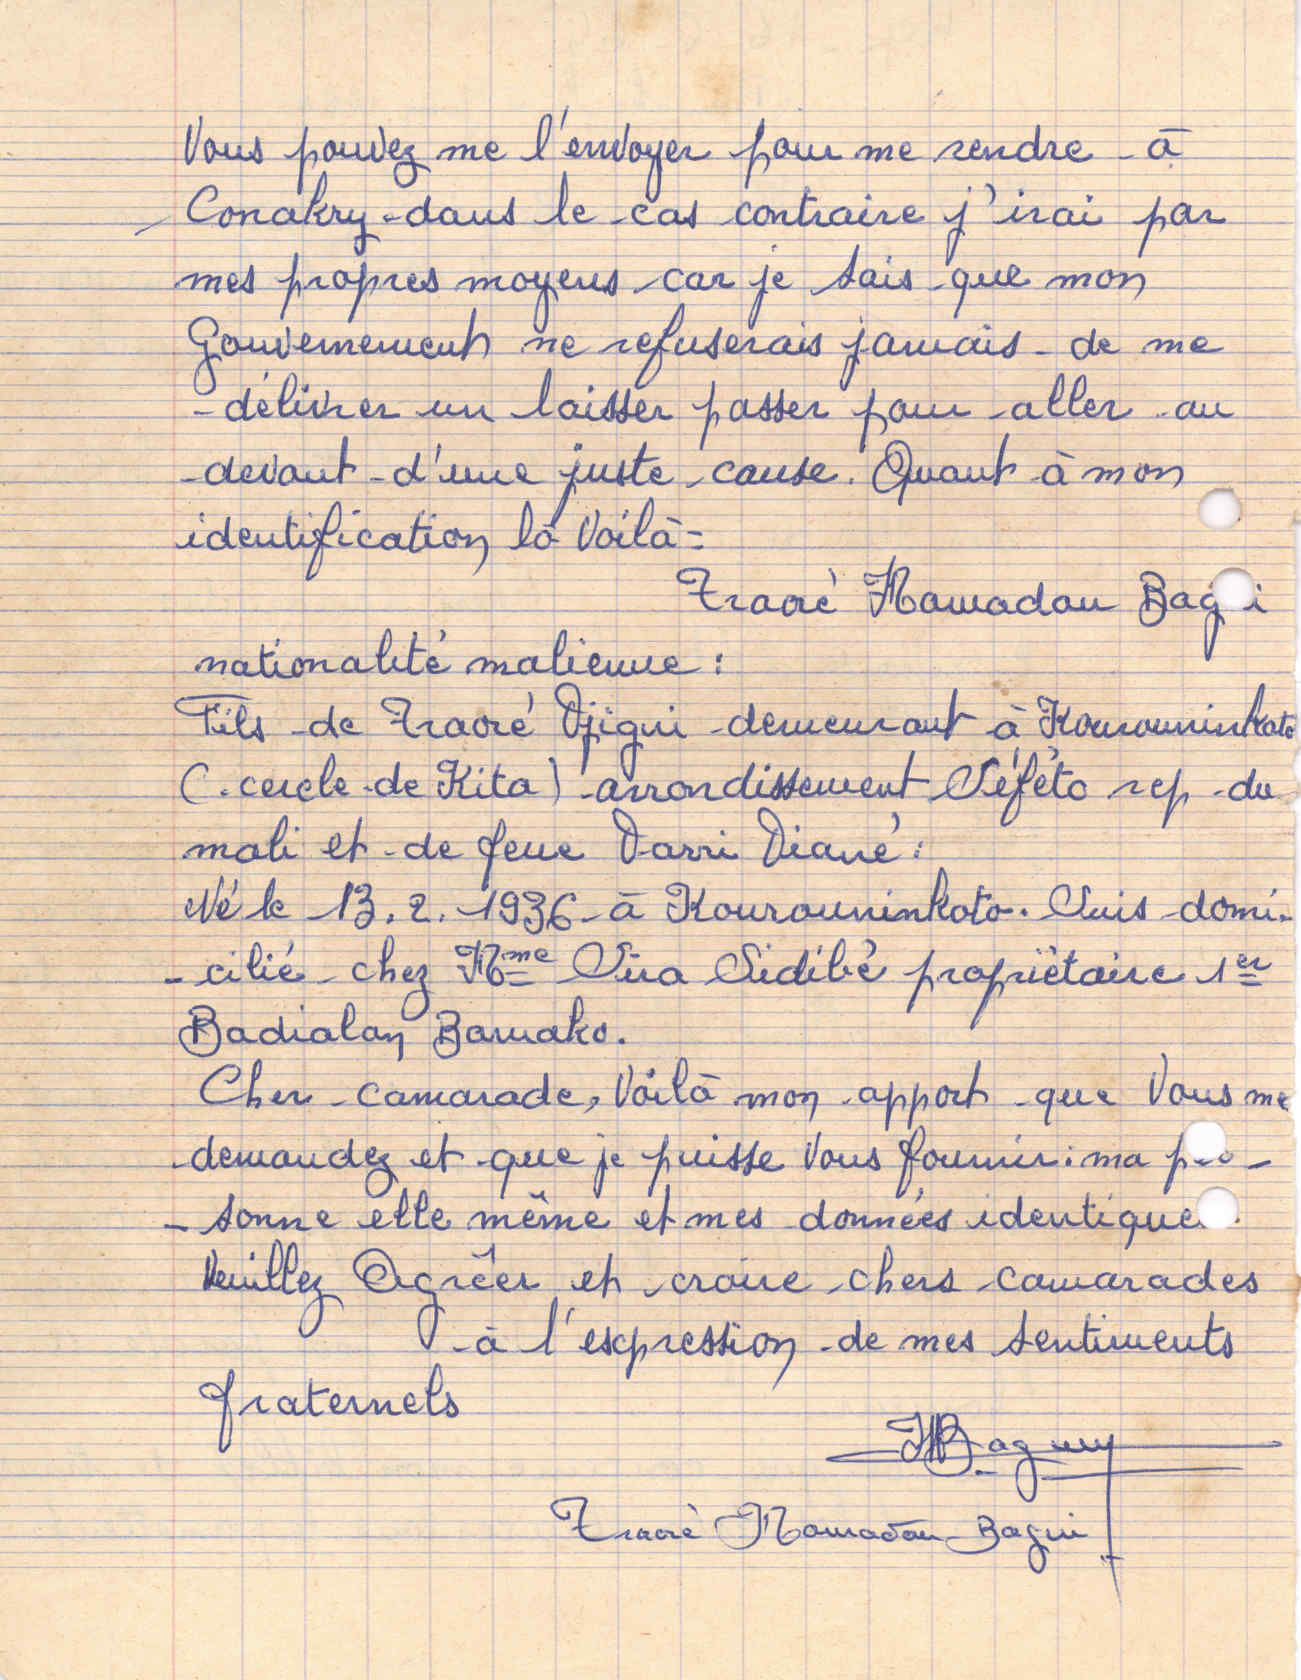 Vous pouvez me l'envoyer pour me rendre à
Conakry dans le cas contraire j'irai par
mes propres moyens car je sais que mon
Gouvernement ne refuserais jamais de me
délivrer un laisser passer pour aller au
devant d'une juste cause. Quant à mon
identification la voilà =
Traoré Mamadou Bagui
nationalité malienne :
Fils de Traoré Djigui demeurant à Kourouninkoto
(cercle de Kita) arrondissement Séféto rep du
mali et de feue Darri Diané :
Né le 13.2.1936 à Kourouninkoto. Suis domi-
-cilié chez Mme Sira Sidibé propriétaire 1er
Badialan Bamako.
Cher camarade, voilà mon apport que vous me
demandez et que je puisse vous fournir : ma per-
-sonne elle même et mes données identiques.
Veuillez Agréer et croire chers camarades
à l'expression de mes sentiments
fraternels
MBaguy
Traoré Mamadou Bagui